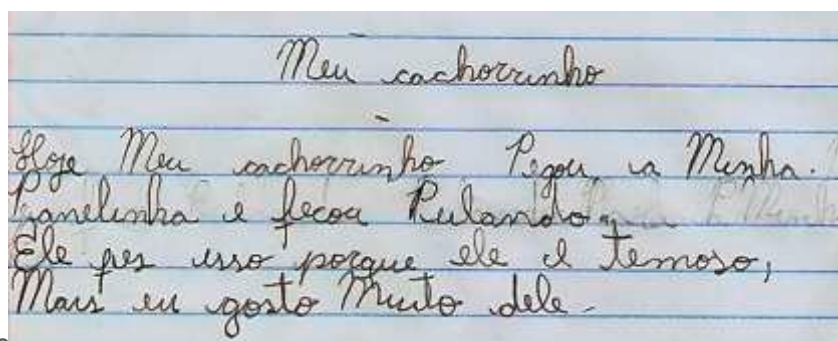 Meu cachorrinho
Hoje Meu cachorrinho Pegou a Minha.
Panelinha e ficou Pulando.
Ele fes isso porque ele é temoso,
Mais eu gosto Muito dele.